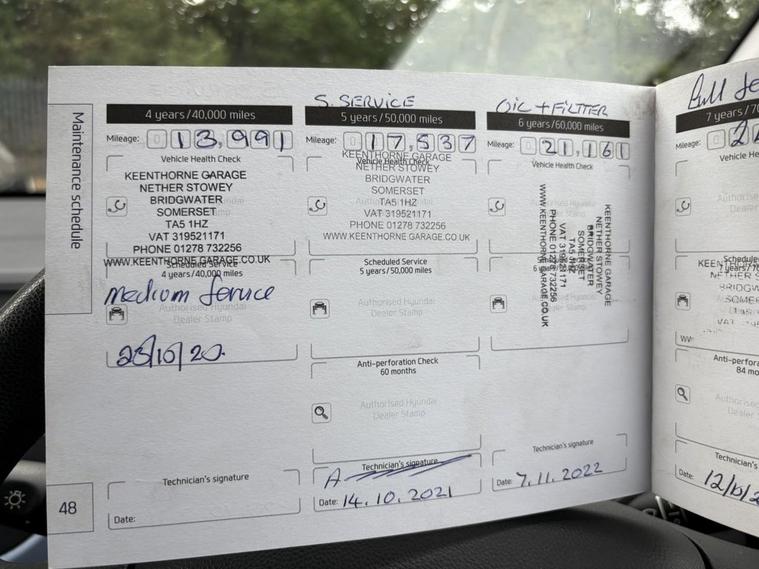 Maintenance schedule
48
4 years/40,000 miles
Mileage: 013,991
Vehicle Health Check
KEENTHORNE GARAGE
NETHER STOWEY
BRIDGWATER
SOMERSET
TA5 1HZ
VAT 319521171
PHONE 01278 732256
WWW.KEENTHORNEGARAGE.CO.UK
Scheduled Service
4 years/40,000 miles
medium Service
Dealer Stamp
Technician's signature
Date:
S. SERVICE
5 years/50,000 miles
Mileage: 017,537
Vehicle Health Check
KEENTHORNE GARAGE
NETHER STOWEY
BRIDGWATER
SOMERSET
TA5 1HZ
VAT 319521171
PHONE 01278 732256
WWW.KEENTHORNEGARAGE.CO.UK
Scheduled Service
5 years/50,000 miles
Authorised Hyundai
Dealer Stamp
Anti-perforation Check
60 months
Authorised Hyundai
Dealer Stamp
Technician's signature
Date: 14.10.2021
OIL + FILTTER
6 years/60,000 miles
Mileage: 021,161
Vehicle Health Check
KEENTHORNE GARAGE
NETHER STOWEY
BRIDGWATER
SOMERSET
TA5 1HZ
VAT 319521171
PHONE 01278 732256
WWW.KEENTHORNEGARAGE.CO.UK
Technician's signature
Date: 7.11.2022
Full Se
7 years/70
Mileage:
Vehicle He
Authori
Deale
Anti-perfora
84 mo
Technician's
Date: